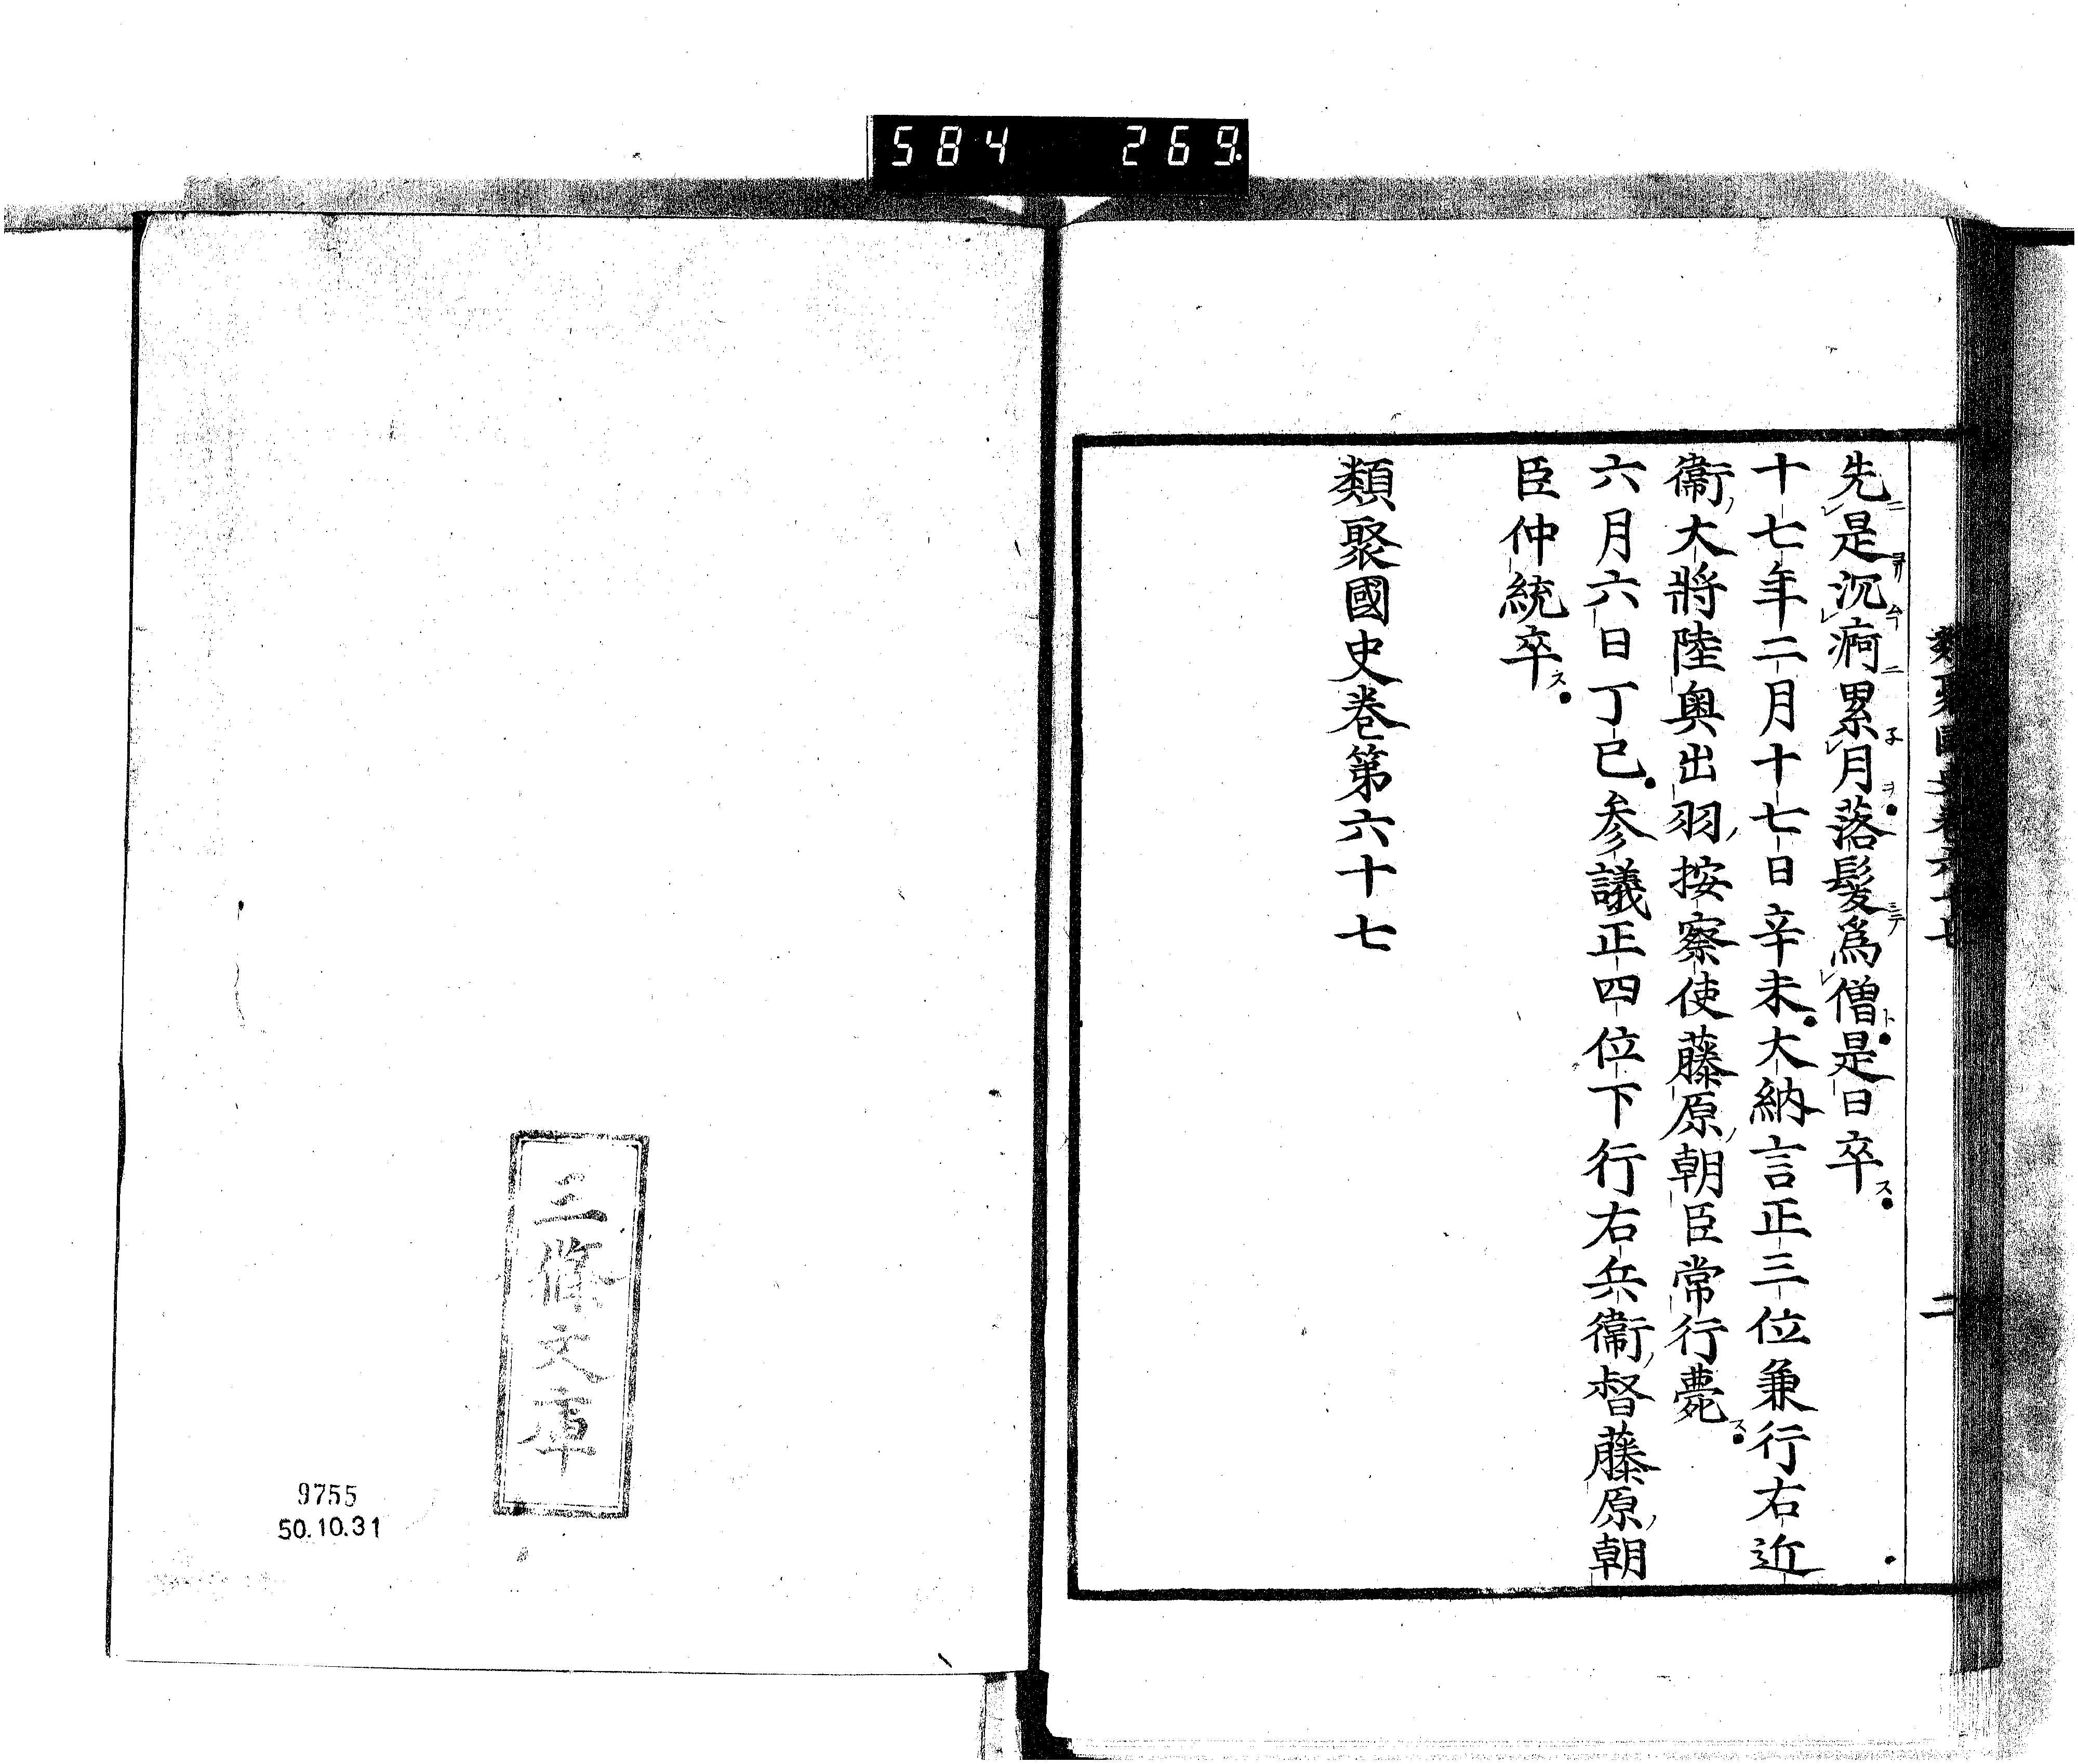 584 269
類聚國史卷六十七
二
先是沉痾累月落髮爲僧是日卒
十七年二月十七日辛未大納言正三位兼行右近
衞大將陸奧出羽按察使藤原朝臣常行薨
六月六日丁巳参議正四位下行右兵衞督藤原朝
臣仲統卒
類聚國史卷第六十七
三條文庫
9755
50.10.31